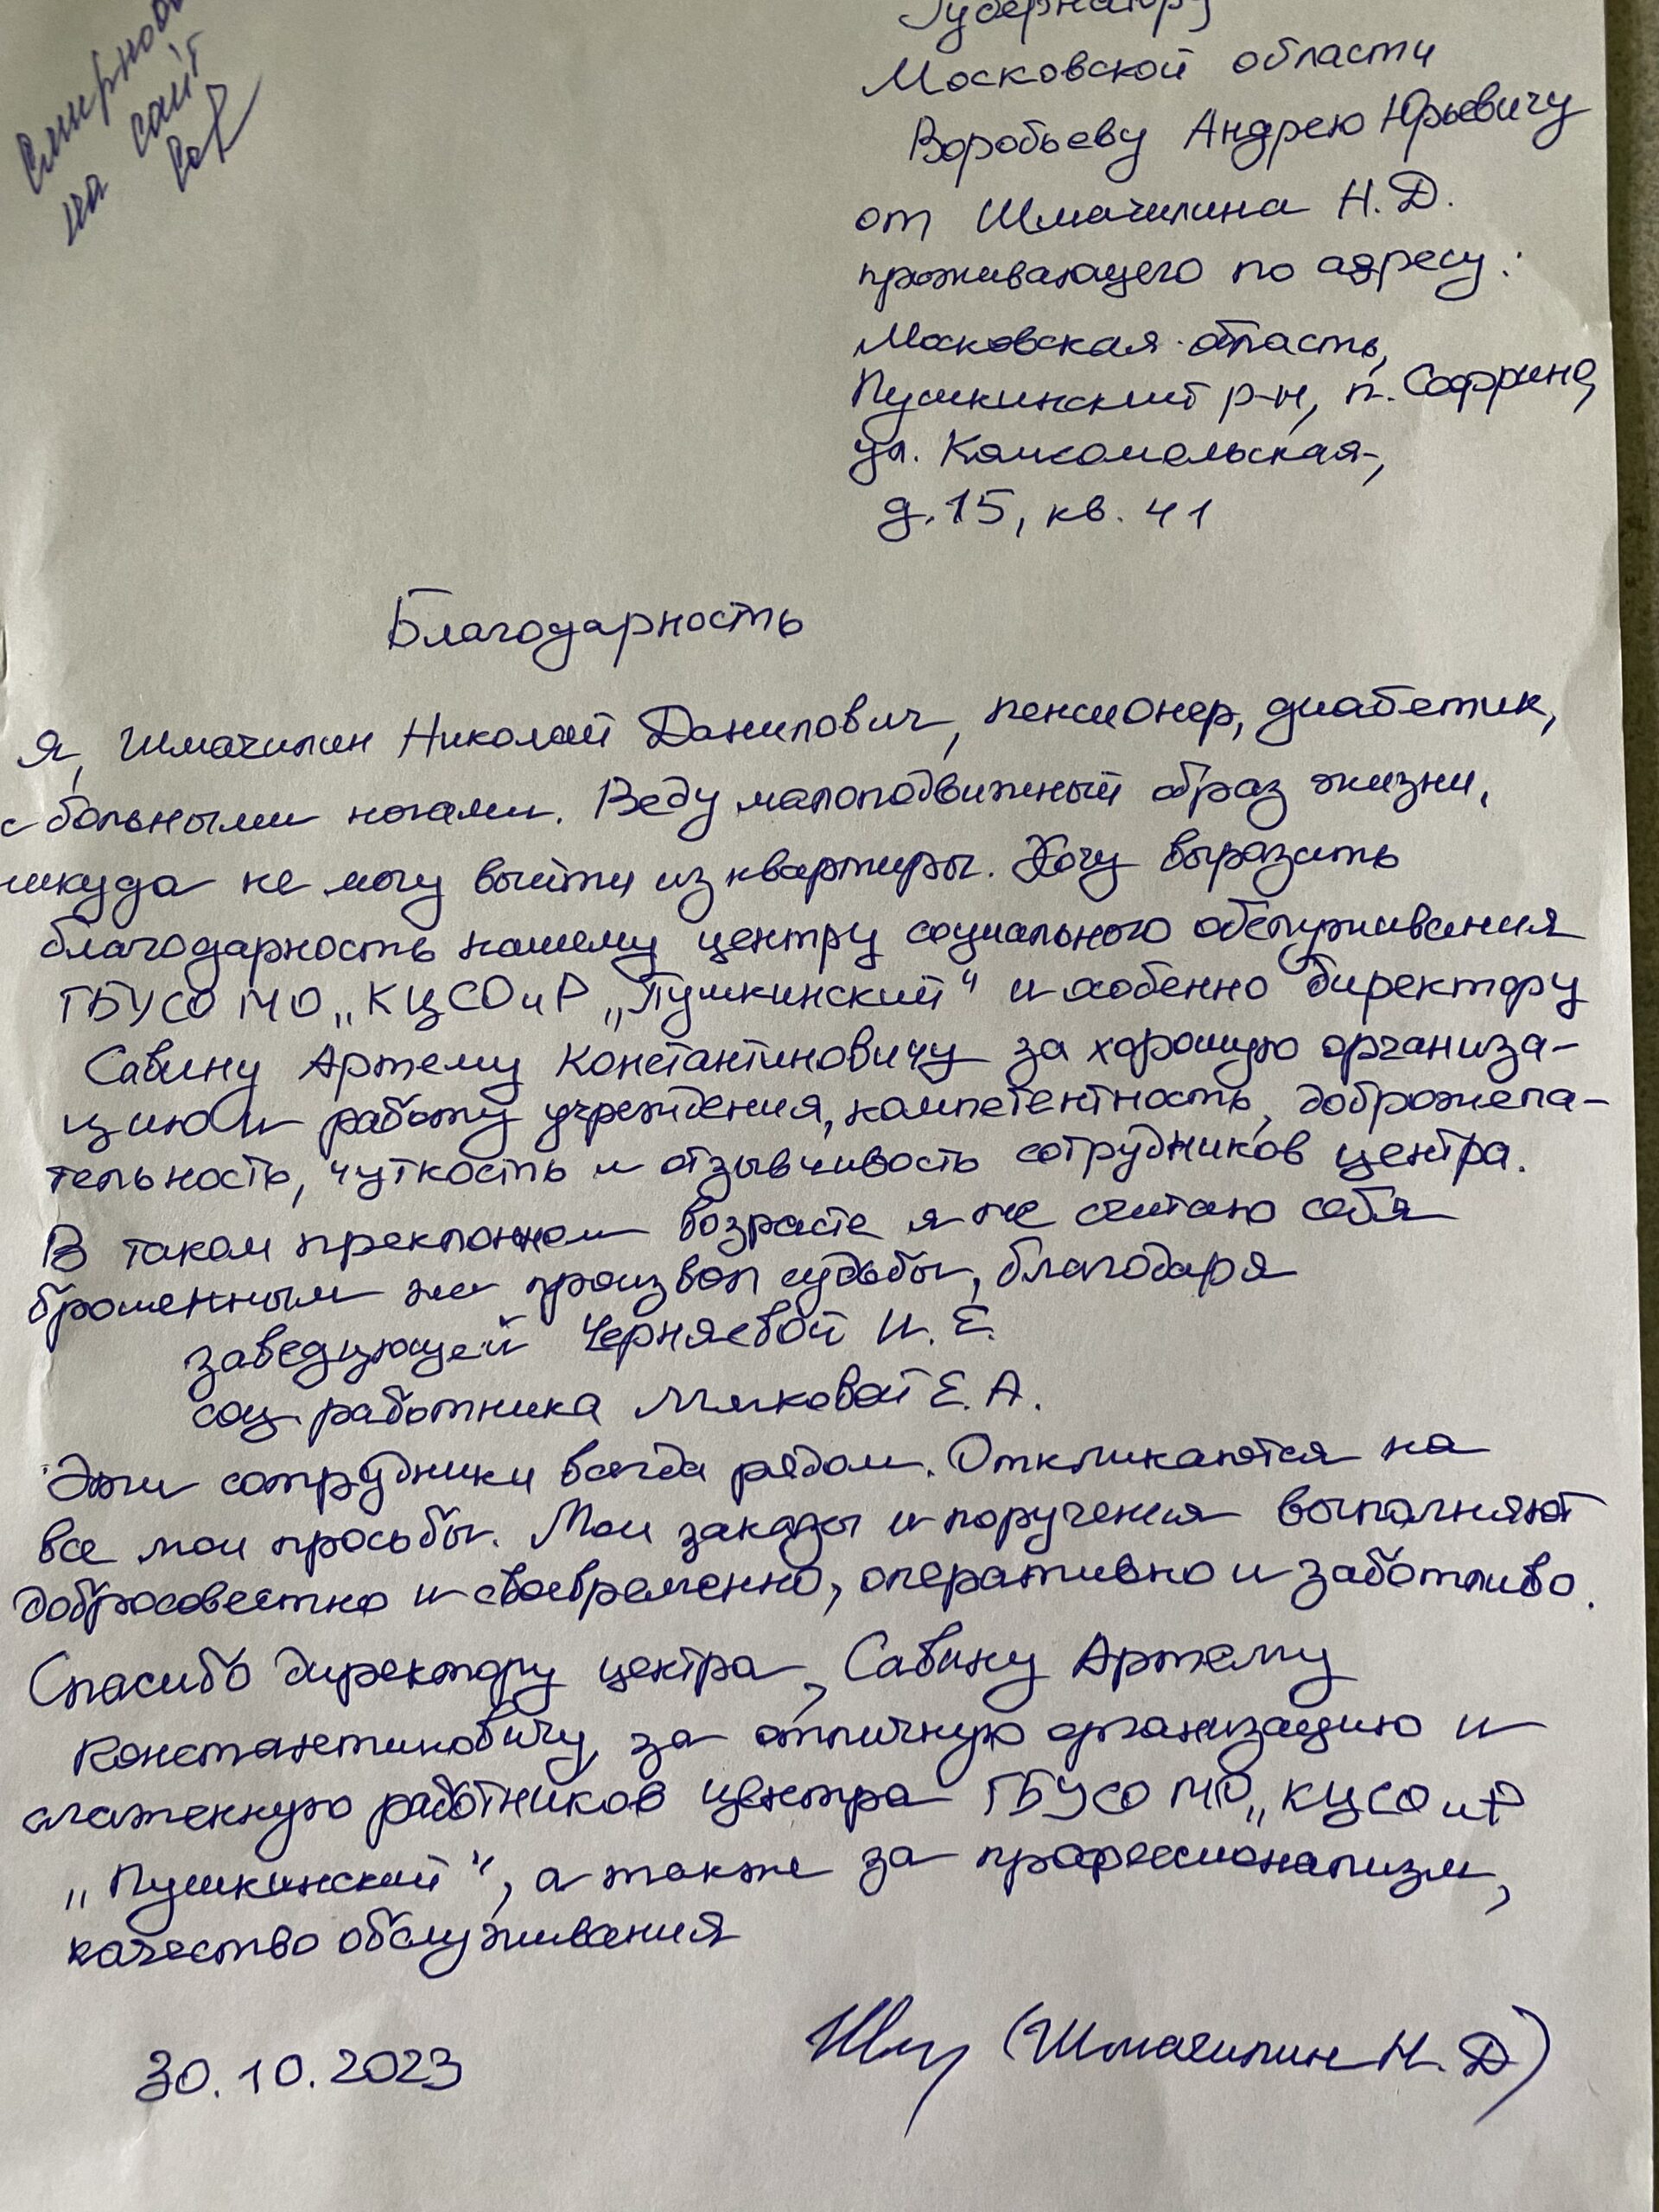 Смирново
на сайт
Губернатору
Московской области
Воробьеву Андрею Юрьевичу
от Шмачилина Н.Д.
проживающего по адресу:
Московская область,
Пушкинский р-н, п. Софрино,
ул. Комсомольская,
д. 15, кв. 41
Благодарность
Я, Шмачилин Николай Данилович, пенсионер, диабетик,
с больными ногами. Веду малоподвижный образ жизни,
никуда не могу выйти из квартиры. Хочу выразить
благодарность нашему центру социального обслуживания
ГБУСО МО „КЦСОиР „Пушкинский“ и особенно директору
Савину Артему Константиновичу за хорошую организа-
цию и работу учреждения, компетентность, доброжела-
тельность, чуткость и отзывчивость сотрудников центра.
В таком преклонном возрасте я не считаю себя
брошенным на произвол судьбы, благодаря
заведующей Черняевой И. Е.
соц. работника Мячковой Е. А.
Эти сотрудники всегда рядом. Откликаются на
все мои просьбы. Мои заказы и поручения выполняют
добросовестно и своевременно, оперативно и заботливо.
Спасибо директору центра, Савину Артему
Константиновичу, за отличную организацию и
слаженную работников центра ГБУСО МО „КЦСО иР
„Пушкинский“, а также за профессионализм,
качество обслуживания
30.10.2023
(Шмачилин Н. Д)